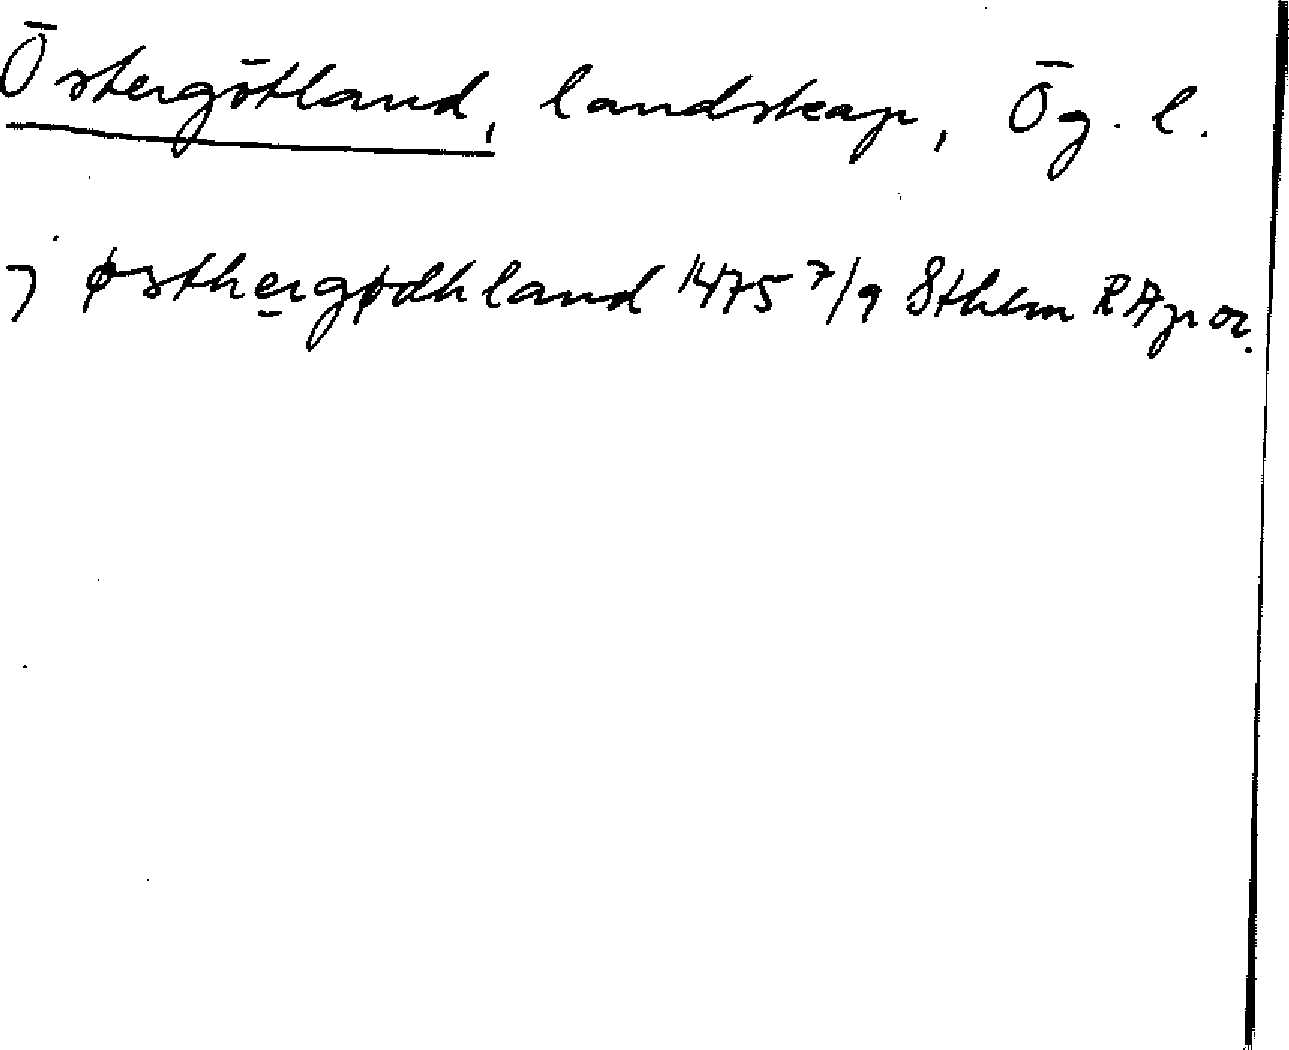 Östergötland, landskap, Ög. l.
j østhergødhland 1475 7/9 Sthlm RAp or.